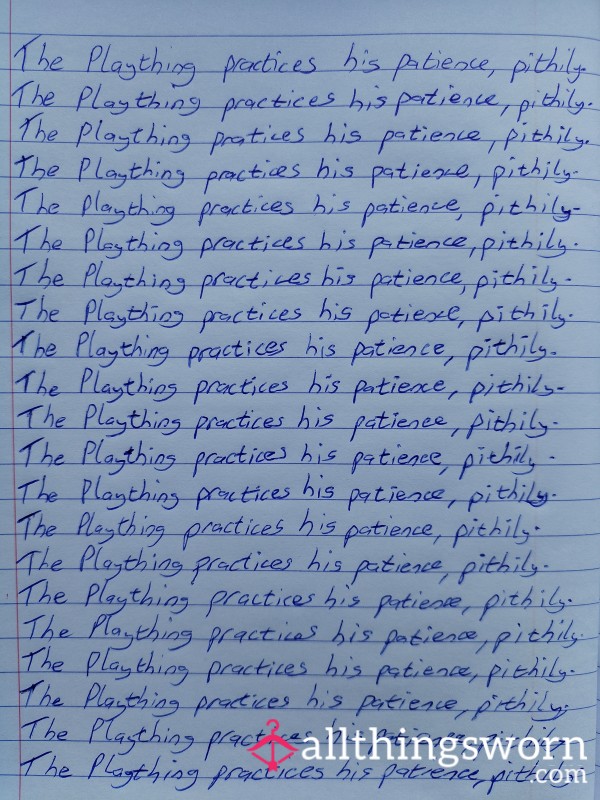 The Plaything practices his patience, pithily.
The Plaything practices his patience, pithily.
The Plaything pratices his patience, pithily.
The Plaything practices his patience, pithily.
The Plaything practices his patience, pithily.
The Plaything practices his patience, pithily.
The Plaything practices his patience, pithily.
The Plaything practices his patience, pithily.
The Plaything practices his patience, pithily.
The Plaything practices his patience, pithily.
The Plaything practices his patience, pithily.
The Plaything practices his patience, pithily.
The Plaything practices his patience, pithily.
The Plaything practices his patience, pithily.
The Plaything practices his patience, pithily.
The Plaything practices his patience, pithily.
The Plaything practices his patience, pithily.
The Plaything practices his patience, pithily.
The Plaything practices his patience, pithily.
The Plaything practices his patience,
allthingsworn
The Plaything practices his patience,
.com